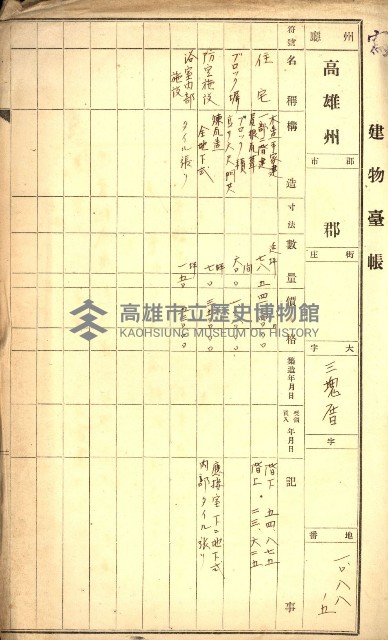 建物臺帳
州 廳
高雄州
郡 市
郡
街 庄
大字
三塊厝
字
地番
一〇八八
ノ五
符號
名稱
構造
寸法
數量
價格
築造年月日
受領 買入 年月日
記事
住宅
木造平家建
一部二階建
屋根瓦葺
延坪
七八
階下 五四.八七五
階上 二三.六二五
ブロック塀
ブロック積
間
防空施設
煉瓦造
全地下式
坪
應接室下ニ地下式
内部タイル張り
浴室内部施設
タイル張り
坪
高雄市立歷史博物館
KAOHSIUNG MUSEUM OF HISTORY